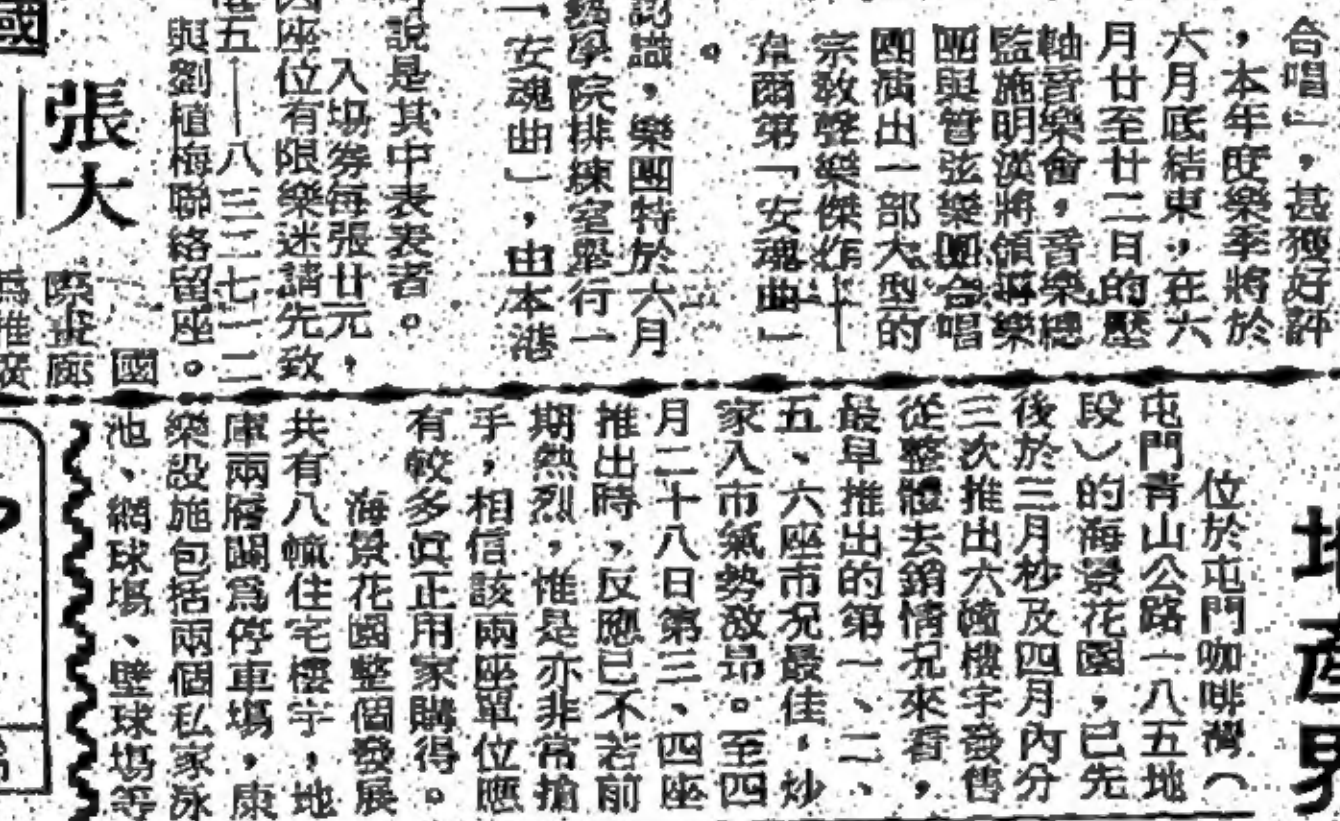 合唱」，甚獲好評
，本年度樂季將於
六月底結束，在六
月廿至廿二日的壓
軸音樂會，音樂總
監施明漢將領導樂
團與管弦樂團合唱
團演出一部大型的
宗教聲樂傑作——
韋爾第「安魂曲」
。
認識，樂團特於六月
學院排練室舉行一
「安魂曲」，由本港
說是其中表表者。
入場券每張廿元，
座位有限樂迷請先致
五——八三二七一二
與劉植梅聯絡留座。
張大
國
際畫廊
為推廣
國
地產界
位於屯門咖啡灣（
屯門青山公路一八五地
段）的海景花園，已先
後於三月杪及四月內分
三次推出六幢樓宇發售
從整體去銷情況來看，
最早推出的第一、二、
五、六座市況最佳，炒
家入市氣勢激昂。至四
月二十八日第三、四座
推出時，反應已不若前
期熱烈，惟是亦非常搶
手，相信該兩座單位應
有較多真正用家購得。
海景花園整個發展
共有八幢住宅樓宇，地
庫兩層闢為停車場，康
樂設施包括兩個私家泳
池、網球場、壁球場等